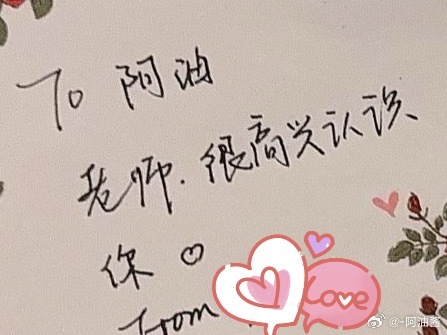 To 阿油
老师.很高兴认识
你♡
From
Love
@-阿油酱